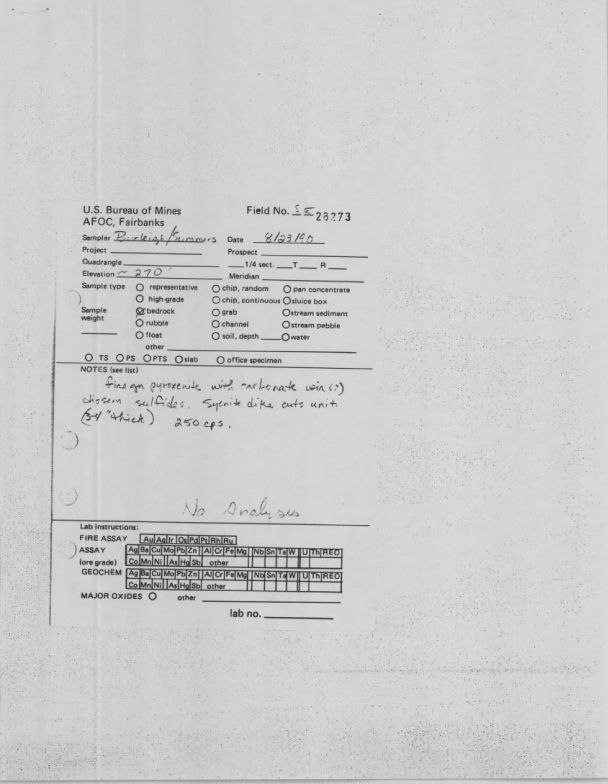 U.S. Bureau of Mines Field No. SE 28273
AFOC, Fairbanks
Sampler Burleigh/Summers Date 8/23/90
Project Prospect
Quadrangle 1/4 sect. T R
Elevation ~ 270' Meridian
Sample type representative chip, random pan concentrate
high-grade chip, continuous sluice box
Sample weight bedrock grab stream sediment
rubble channel stream pebble
float soil, depth water
other
TS PS PTS slab office specimen
NOTES (see list)
fine gn pyroxenite with carbonate vein (?)
dissem sulfides. Syenite dike cuts unit
(3-4" thick) 250 cps.
No Analyses
Lab instructions:
FIRE ASSAY Au Ag Ir Os Pd Pt Rh Ru
ASSAY Ag Ba Cu Mo Pb Zn Al Cr Fe Mg Nb Sn Ta W U Th REO
(ore grade) Co Mn Ni As Hg Sb other
GEOCHEM Ag Ba Cu Mo Pb Zn Al Cr Fe Mg Nb Sn Ta W U Th REO
Co Mn Ni As Hg Sb other
MAJOR OXIDES other
lab no.